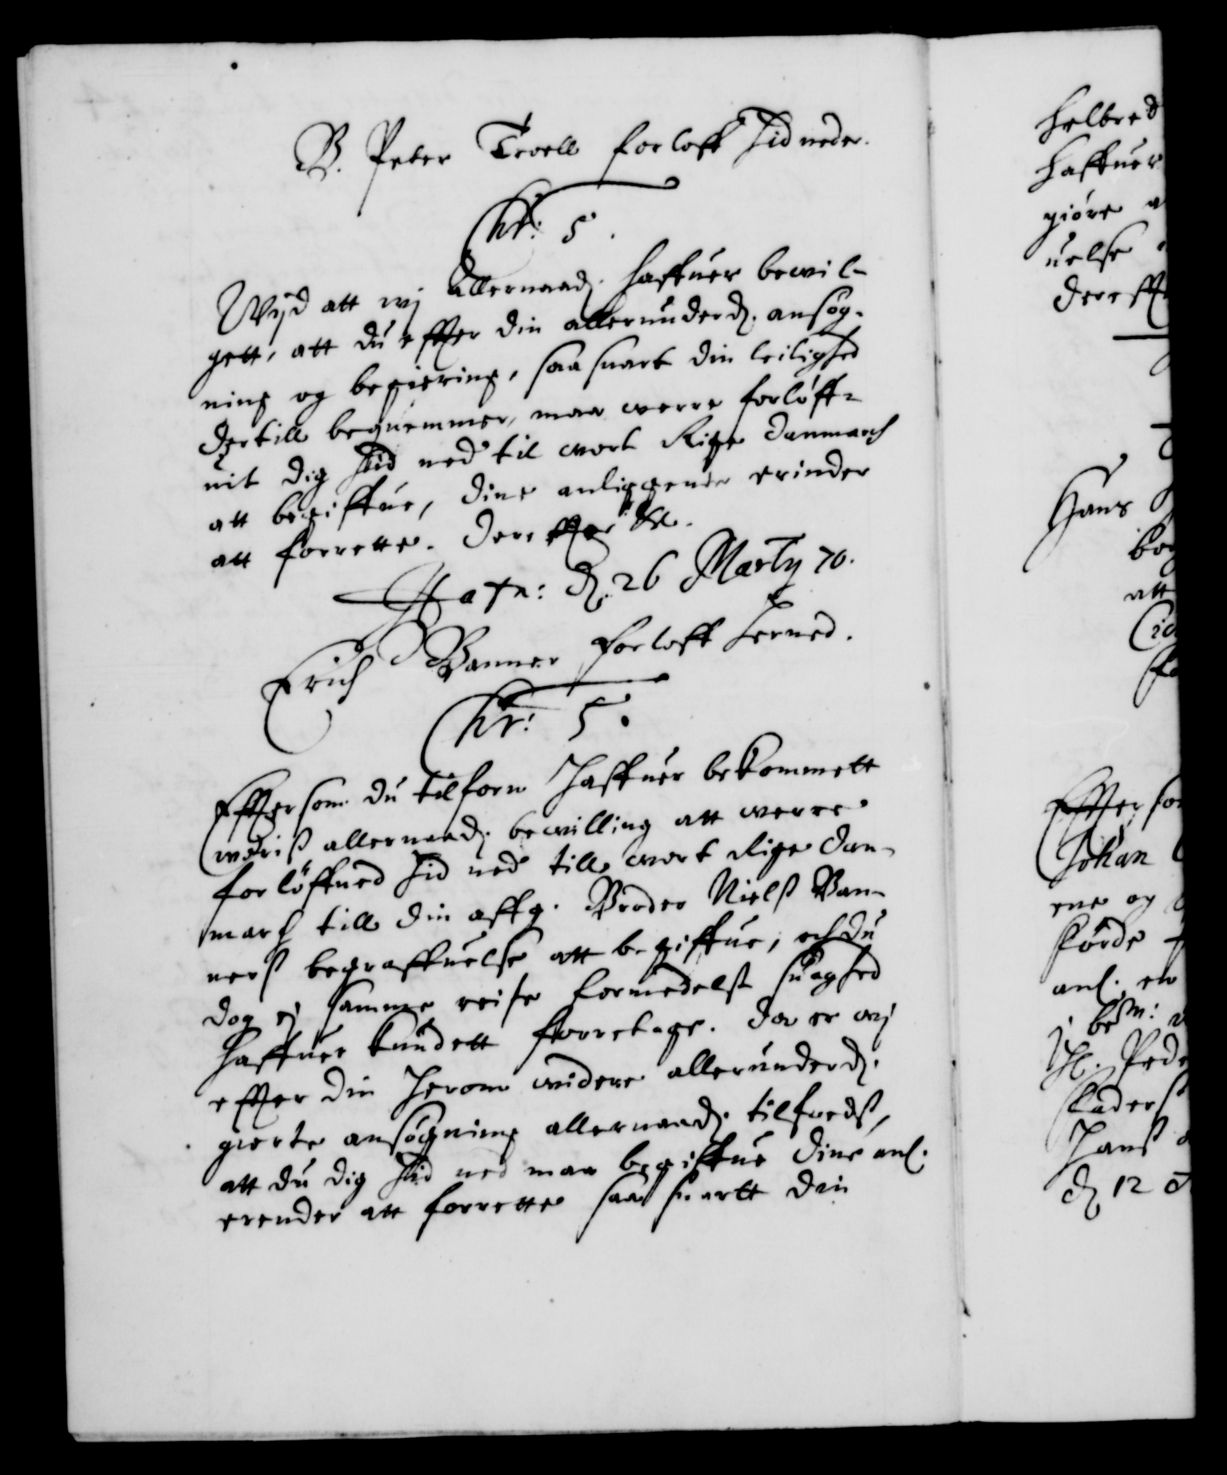 B. Peter Troell forloff hid neder.
Chr: 5.
Wijd att wj allernaad: haffuer bewil-
gett, att du effter din allerunderd: ansøg-
ning og begiering, saa snart din leilighed
dertill beqvemmer, maa werre forløff-
uit dig hid ned til wort Rige Danmarch
att begiffue, dine anliggende erinder
att forrette. Dereffter &c.
Hafn: d: 26 Martij 70.
Erich Banner forloff herned.
Chr: 5.
Effter som du tilforn haffuer bekommett
woris allernaad: bewilling att werre
forløffued hid ned till wort Rige Dan-
march till din affg: Broder Nielß Ban-
nerß begraffuelse att begiffue, och du
dog ej samme reise formedelst suaghed
haffuer kundett forretage. Da er wj
effter din herom widere allerunderd:
giorte ansøgning allernaad: tilfreds,
att du dig hid ned maa begiffue dine anl:
erender att forrette saa snartt din
helbred
haffuer
giøre
uelse
dereff
Hans
att
Effter som
Johan
ene og
førde
anl: en
be^m:
Hl. Peder
Hans
d: 12